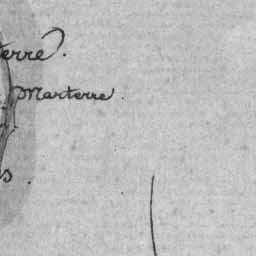 terre.
Marterre.
s.